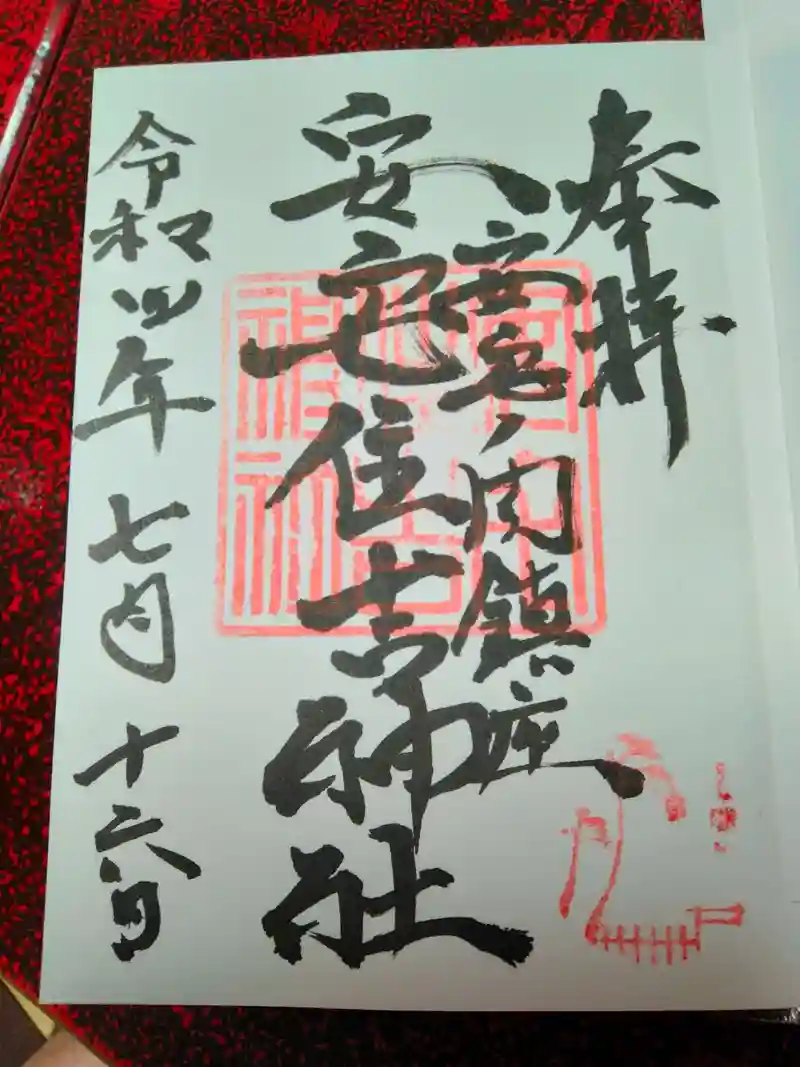 奉拝
安宅ノ関鎮座
安宅住吉神社
令和四年七月十六日